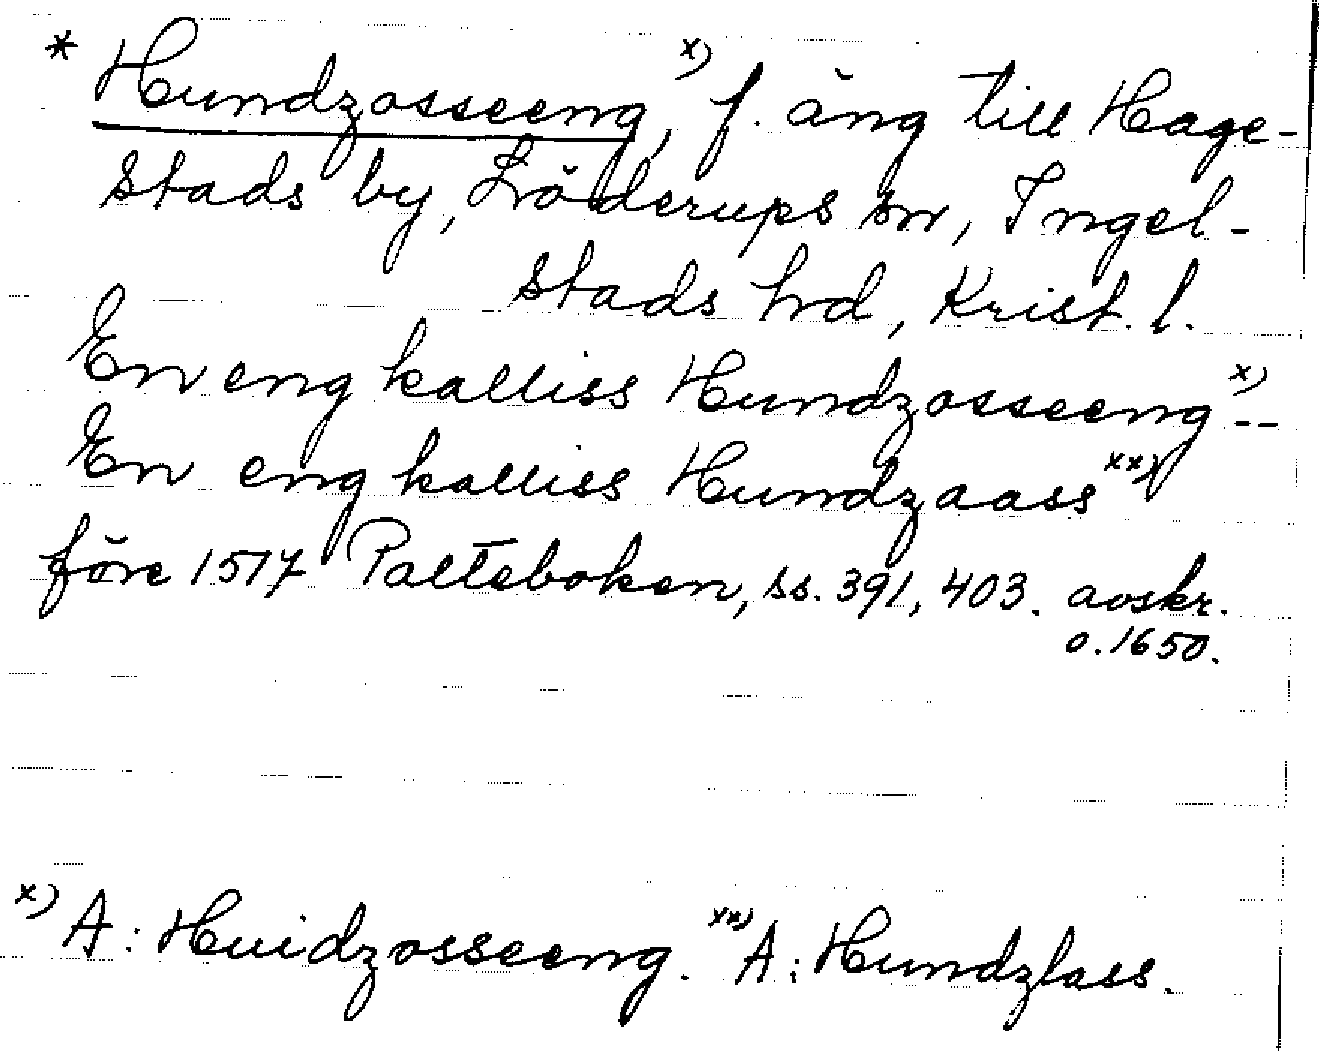 * Hundzosseeng, x) f. äng till Hage-
stads by, Löderups sn, Ingel-
stads hrd, Krist. l.
En eng kalliss Hundzosseeng x) --
En eng kalliss Hundzaass xx)
före 1517 Palteboken, ss. 391, 403. avskr.
o. 1650.
x) A: Huidzosseeng. xx) A: Hundzlass.